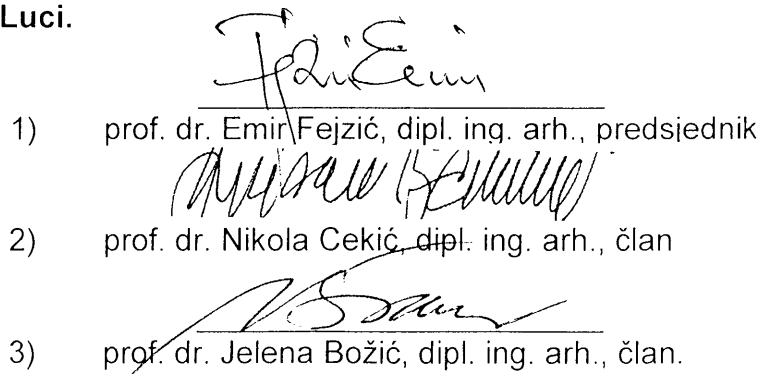 Luci.
1) prof. dr. Emir Fejzić, dipl. ing. arh., predsjednik
2) prof. dr. Nikola Cekić, dipl. ing. arh., član
3) prof. dr. Jelena Božić, dipl. ing. arh., član.